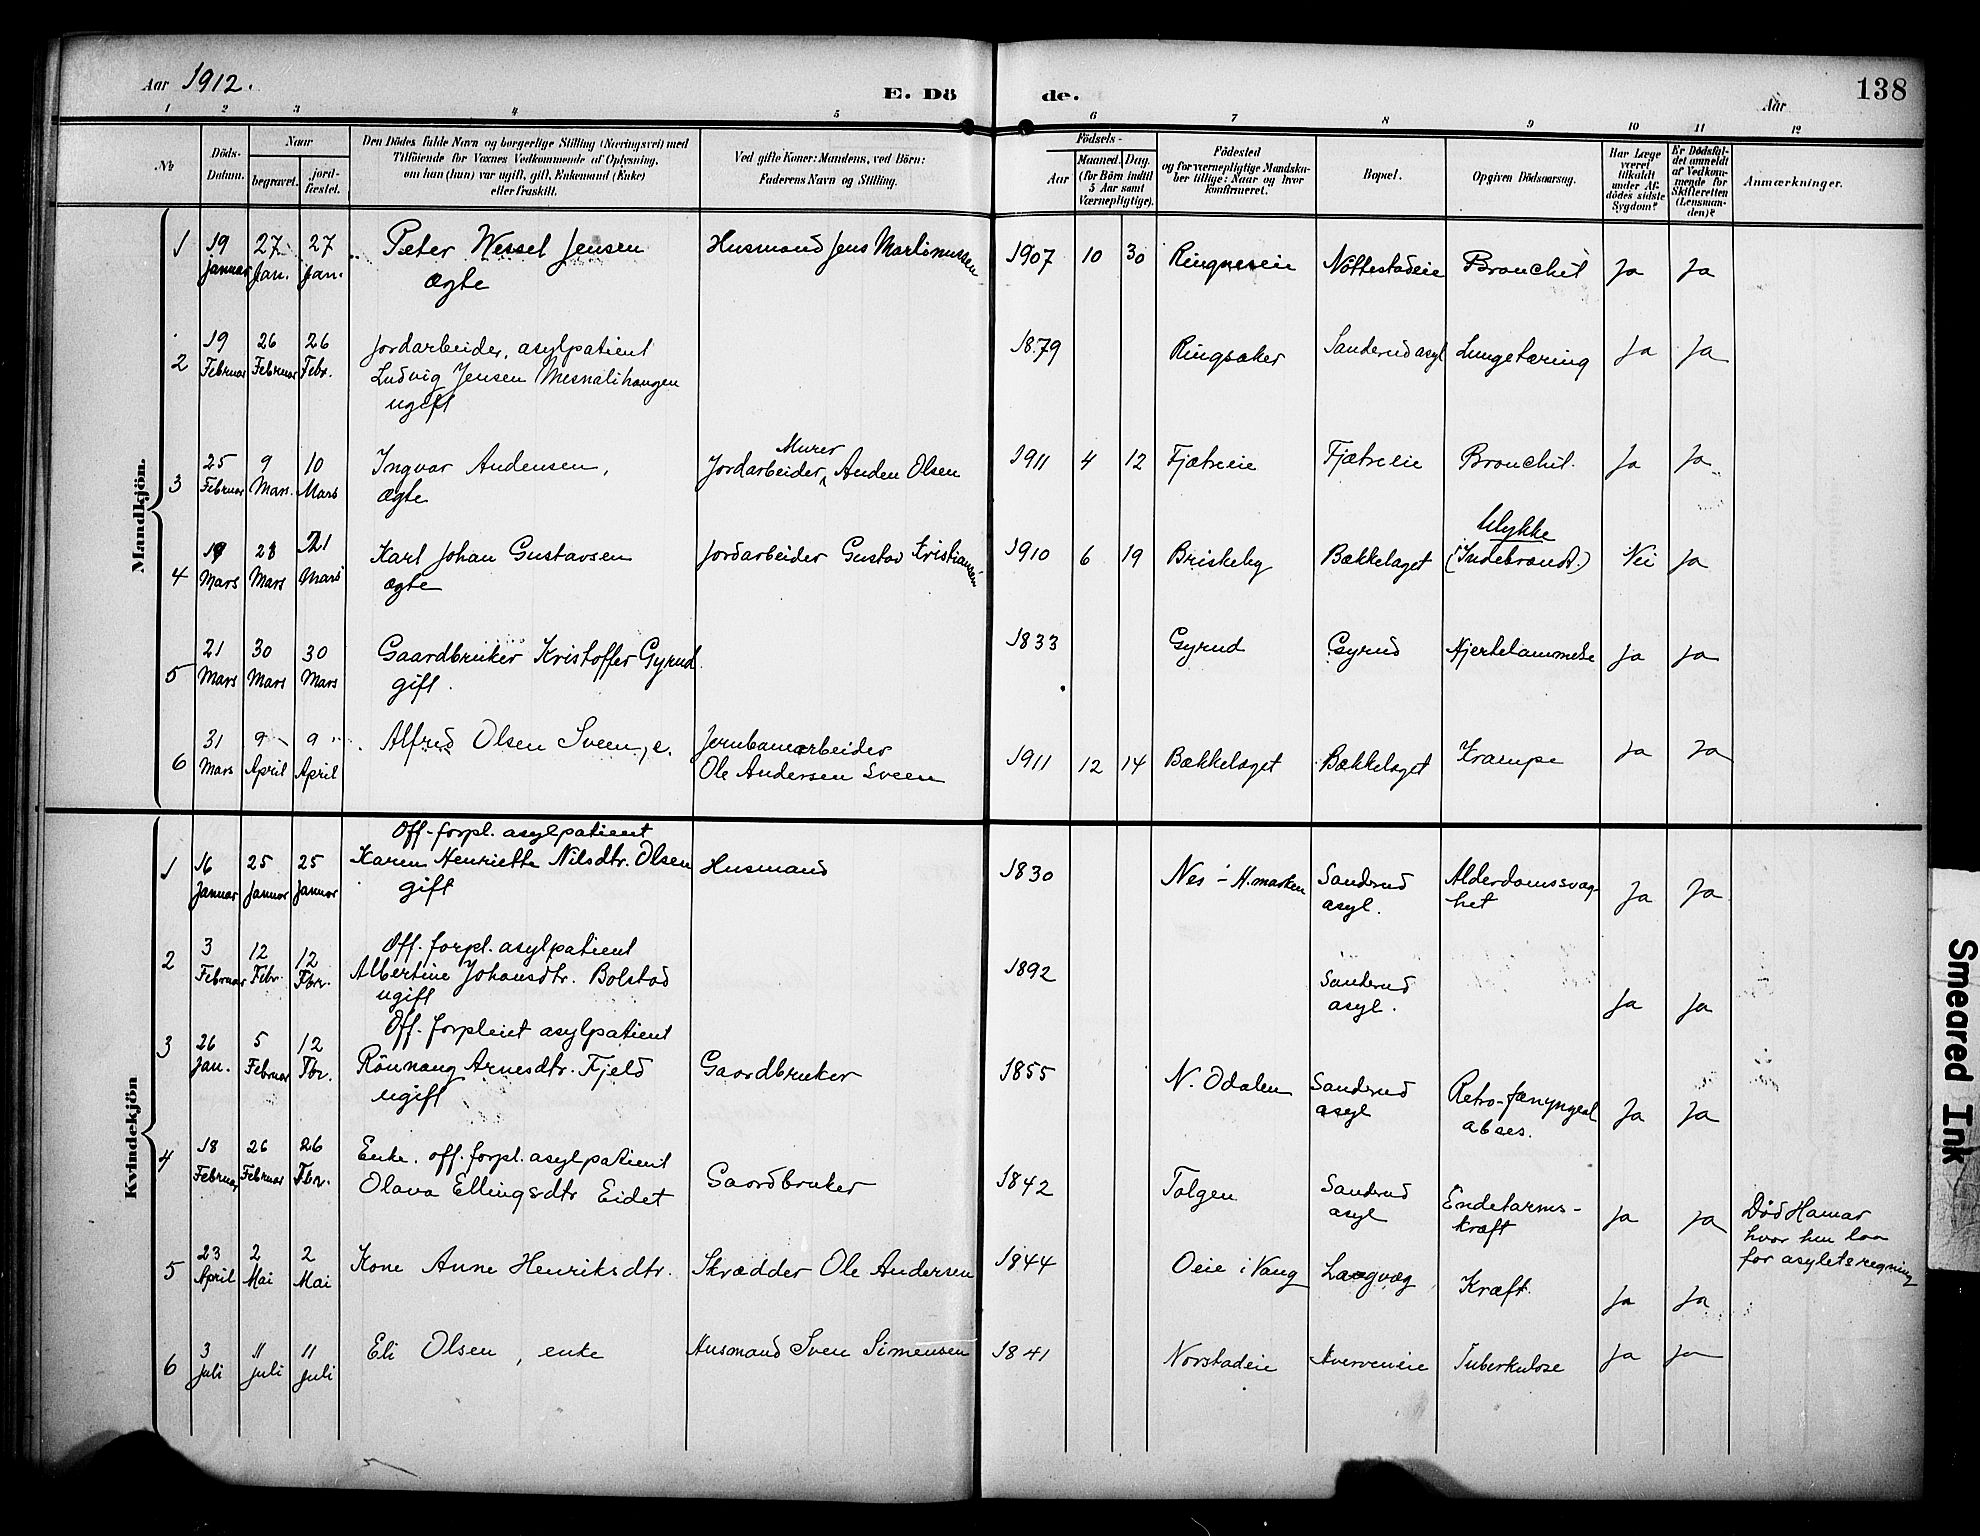 Aar 1912.
E. Döde.
Aar
138
1 2 3 4 5 6 7 8 9 10 11 12
№
Döds-Datum.
Naar
begravet.
jord-fæstet.
Den Dödes fulde Navn og borgerlige Stilling (Næringsvei) med
Tilföiende for Voxnes Vedkommende af Oplysning,
om han (hun) var ugift, gift, Enkemand (Enke)
eller fraskilt.
Ved gifte Koner: Mandens, ved Börn:
Faderens Navn og Stilling.
Födsels-
Aar
Maaned. Dag.
(for Börn indtil
5 Aar samt
Værnepligtige).
Födested
og for værnepligtige Mandska-
ber tillige: Naar og hvor
konfirmeret.
Bopæl.
Opgiven Dödsaarsag.
Har Læge
været
tilkaldt
under Af-
dödes sidste
Sygdom?
Er Dödsfal-
det anmeldt
af Vedkom-
mende for
Skifteretten
(Lensman-
den)?
Anmærkninger.
Mandkjön.
1 19 januar 27 Jan. 27 Jan. Peter Wessel Jensen Husmand Jens Martinussen 1907 10 30 Ringneseie Nöttestadeie Bronchit Ja Ja
ægte
2 19 Februar 26 Februar 26 Febr. Jordarbeider, asylpatient 1879 Ringsaker Sanderud asyl Lungetæring Ja Ja
Ludvig Jensen Mesnalihaugen
ugift
3 25 Februar 9 Mars 10 Mars Ingvar Andersen, Murer 1911 4 12 Fjætreeie Fjætreeie Bronchit. Ja Ja
ægte Jordarbeider Anders Olsen
4 19 Mars 28 Mars 21 Mars Karl Johan Gustavsen Jordarbeider Gustav Kristiansen 1910 6 19 Briskeby Bækkelaget Ulykke (Indebrændt.) Nei Ja
ægte
5 21 Mars 30 Mars 30 Mars Gaardbruker Kristoffer Gyrud 1833 Gyrud Gyrud Hjertelammelse Ja Ja
gift.
6 31 Mars 9 April 9 April Alfred Olsen Sveen, e. Jernbanearbeider 1911 12 14 Bækkelaget Bækkelaget Krampe Ja Ja
Ole Andersen Sveen
Kvindekjön
Off. forpl. asylpatient
1 16 Januar 25 Januar 25 Januar Karen Henriette Nilsdtr. Olsen Husmand 1830 Nes i H.marken Sanderud asyl. Alderdomssvag-
gift het Ja Ja
Off. forpl. asylpatient
2 3 Februar 12 Febr. 12 Febr. Albertine Johansdtr. Bolstad 1892 Sanderud asyl. Ja Ja
ugift
Off. forpleiet asylpatient
3 26 Jan. 5 Februar 12 Fbr. Rönnaug Arnesdtr. Fjeld Gaardbruker 1855 N. Odalen Sanderud asyl Retro-færyngeal
ugift abses. Ja Ja
4 18 Februar 26 Februar 26 Fbr. Enke. off. forpl. asylpatient
Olava Ellingsdtr Eidet Gaardbruker 1842 Tolgen Sanderud asyl Endetarms-
kræft Ja Ja Död Hamar
hvor hun laa
for asylets regning
5 23 April 2 Mai 2 Mai Kone Anne Henriksdtr. Skrædder Ole Andersen 1844 Oeie i Vang Kræft. Ja Ja
6 3 Juli 11 Juli 11 Juli Eli Olsen, enke Husmand Sven Simensen 1841 Norstadeie Tuberkulose Ja Ja
Smeared Ink